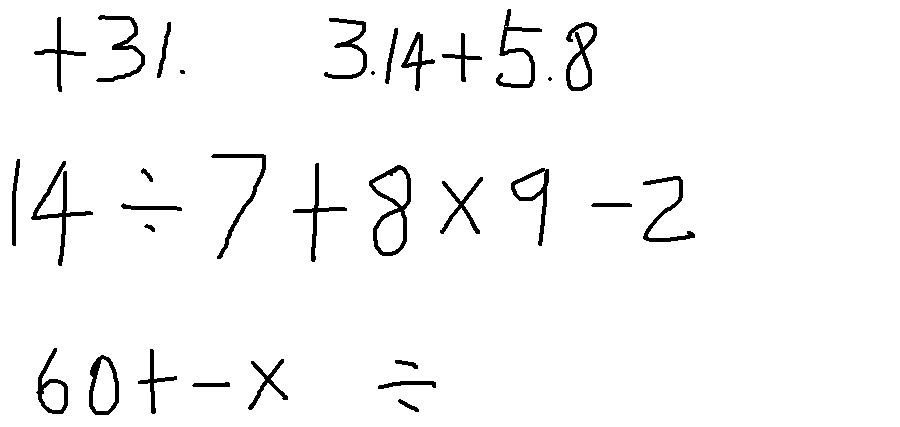 +31. 3.14+5.8
14÷7+8×9-2
60+-× ÷